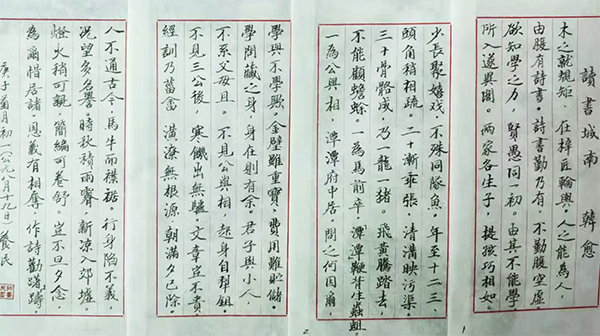 讀書城南 韓愈
木之就規矩。在梓匠輪輿。人之能為人，
由腹有詩書。詩書勤乃有，不勤腹空虛
欲知學之力，賢愚同一初。由其不能學，
所入遂異閭。兩家各生子，提孩巧相如。
少長聚嬉戲 不殊同隊魚。年至十二三，
頭角稍相疏。二十漸乖張，清溝映污渠。
三十骨骼成，乃一龍一豬。飛黃騰踏去，
不能顧蟾蜍。一為馬前卒，鞭背生蟲蛆。
一為公與相，潭潭府中居。問之何因爾，
2
學與不學歟。金璧雖重寶，費用難貯儲。
學問藏之身，身在則有餘。君子與小人，
不系父母且。不見公與相，起身自犁鉏。
不見三公後 寒饑出無驢 文章豈不貴
經訓乃菑畬 潢潦無根源 朝滿夕已除。
人不通古今，馬牛而襟裾。行身陷不義，
況望多名譽。時秋積雨霽，新涼入郊墟。
燈火稍可親，簡編可卷舒。豈不旦夕念，
為爾惜居諸。恩義有相奪，作詩勸躊躇。
庚子 月初一公元八月十九日 養民